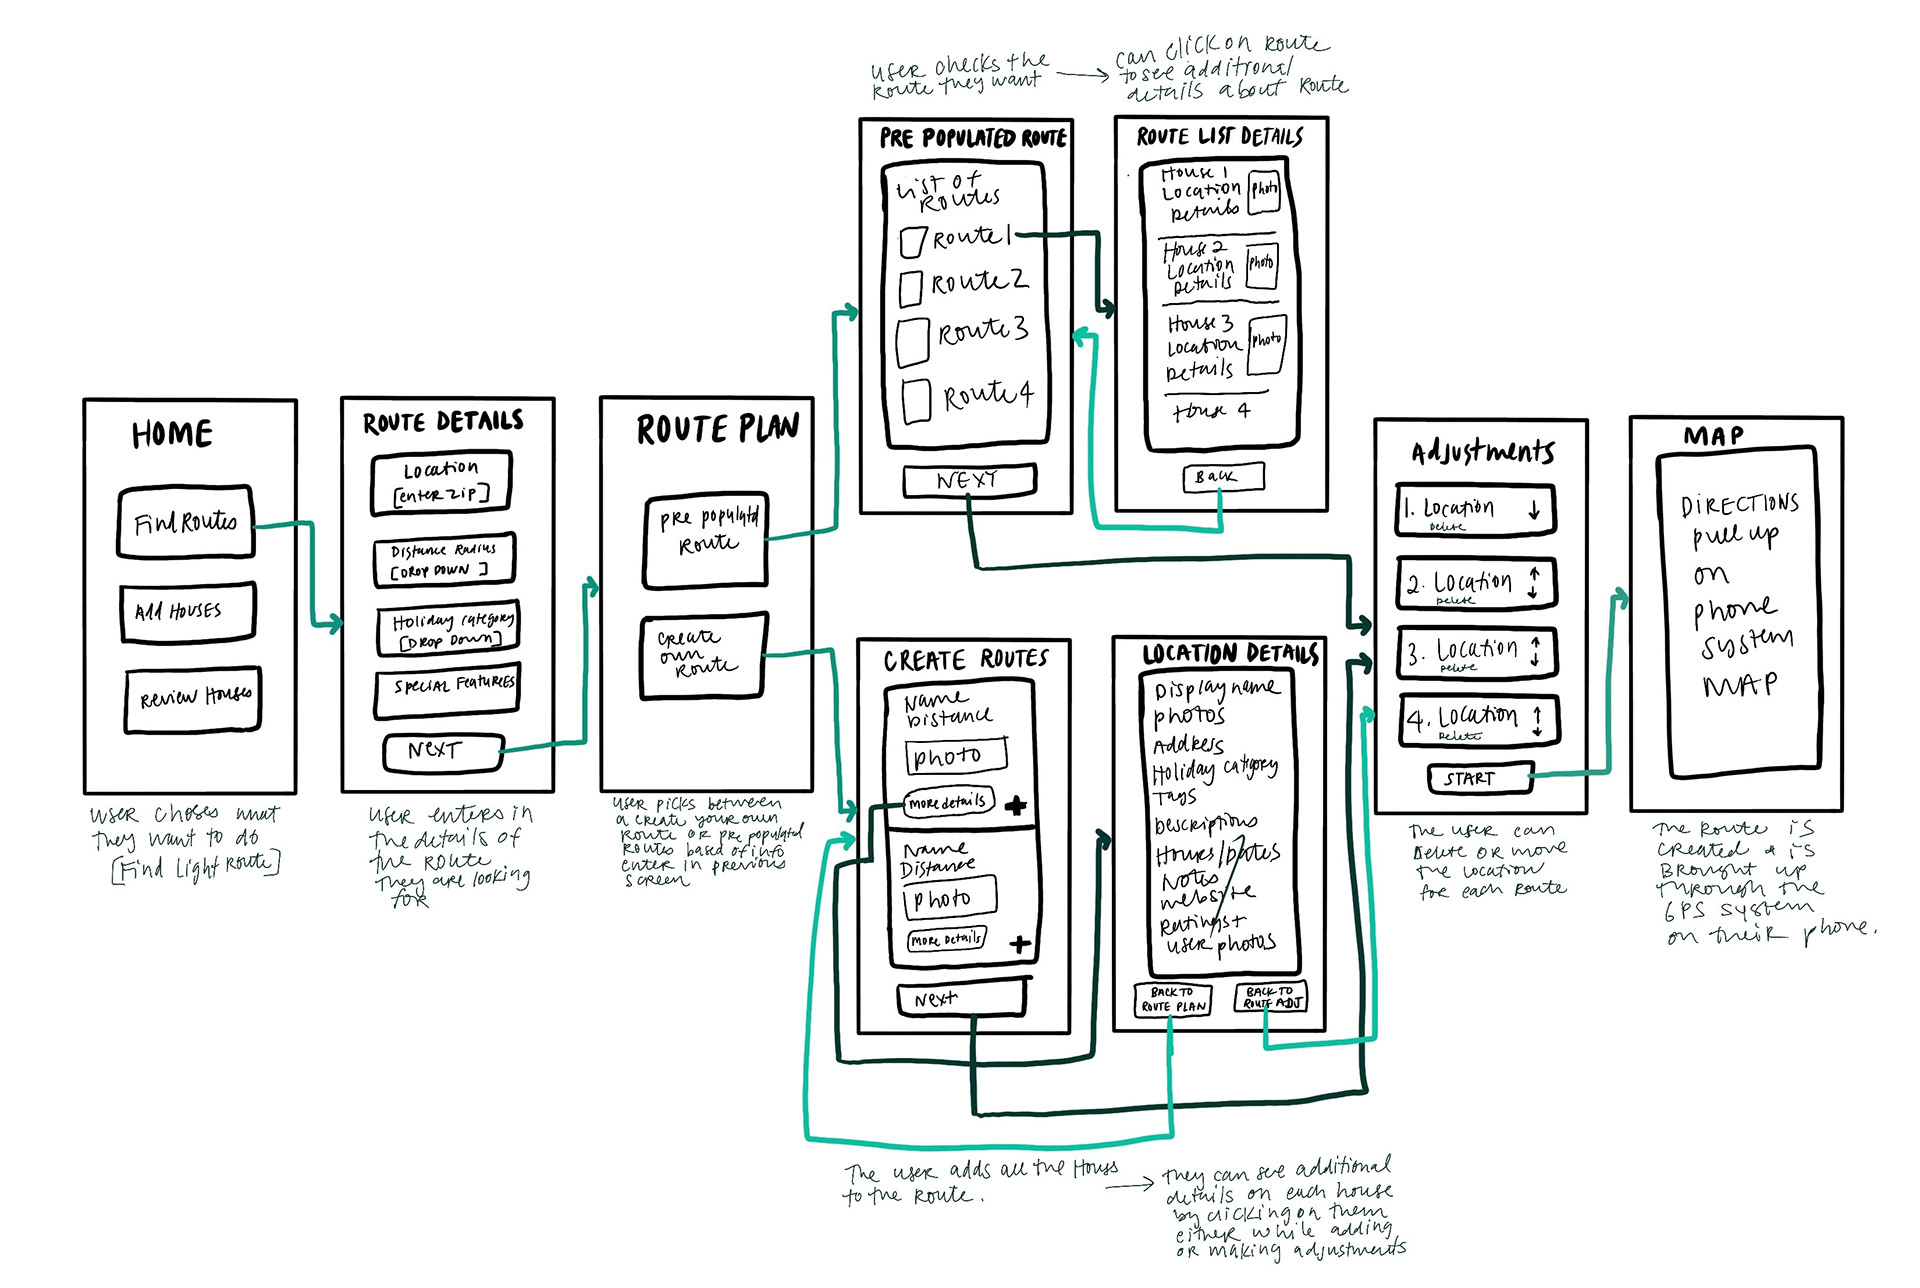 User checks the
Route they want
can click on Route
to see additional
details about Route
PRE POPULATED ROUTE
List of
Routes
Route 1
Route 2
Route 3
Route 4
NEXT
ROUTE LIST DETAILS
House 1
Location
Details
photo
House 2
Location
Details
photo
House 3
Location
Details
photo
House 4
Back
HOME
Find Routes
Add Houses
Review Houses
User choses what
they want to do
[Find Light Route]
ROUTE DETAILS
Location
[enter zip]
Distance Radius
[DROP DOWN ]
Holiday category
[Drop Down]
Special Features
Next
User enters in
the details of
the Route
they are looking
for
ROUTE PLAN
pre populatd
Route
create
own
Route
User picks between
a create your own
Route or pre populated
Routes based of info
enter in previous
screen
CREATE ROUTES
Name
Distance
photo
more details +
Name
Distance
photo
more details +
Next
LOCATION DETAILS
Display name
photos
Address
Holiday category
Tags
Descriptions
Hours/Dates
Notes
website
Ratings +
user photos
BACK TO
ROUTE PLAN
BACK TO
ROUTE ADJ
The user adds all the Houss
to the Route.
they can see additional
details on each house
by clicking on them
either while adding
or making adjustments
Adjustments
1. Location ↓
Delete
2. Location ↑↓
Delete
3. Location ↑↓
Delete
4. Location ↑↓
Delete
START
The user can
Delete or move
the location
for each Route
MAP
DIRECTIONS
pull up
on
phone
system
MAP
The Route is
created & is
Brought up
through the
GPS system
on their phone.